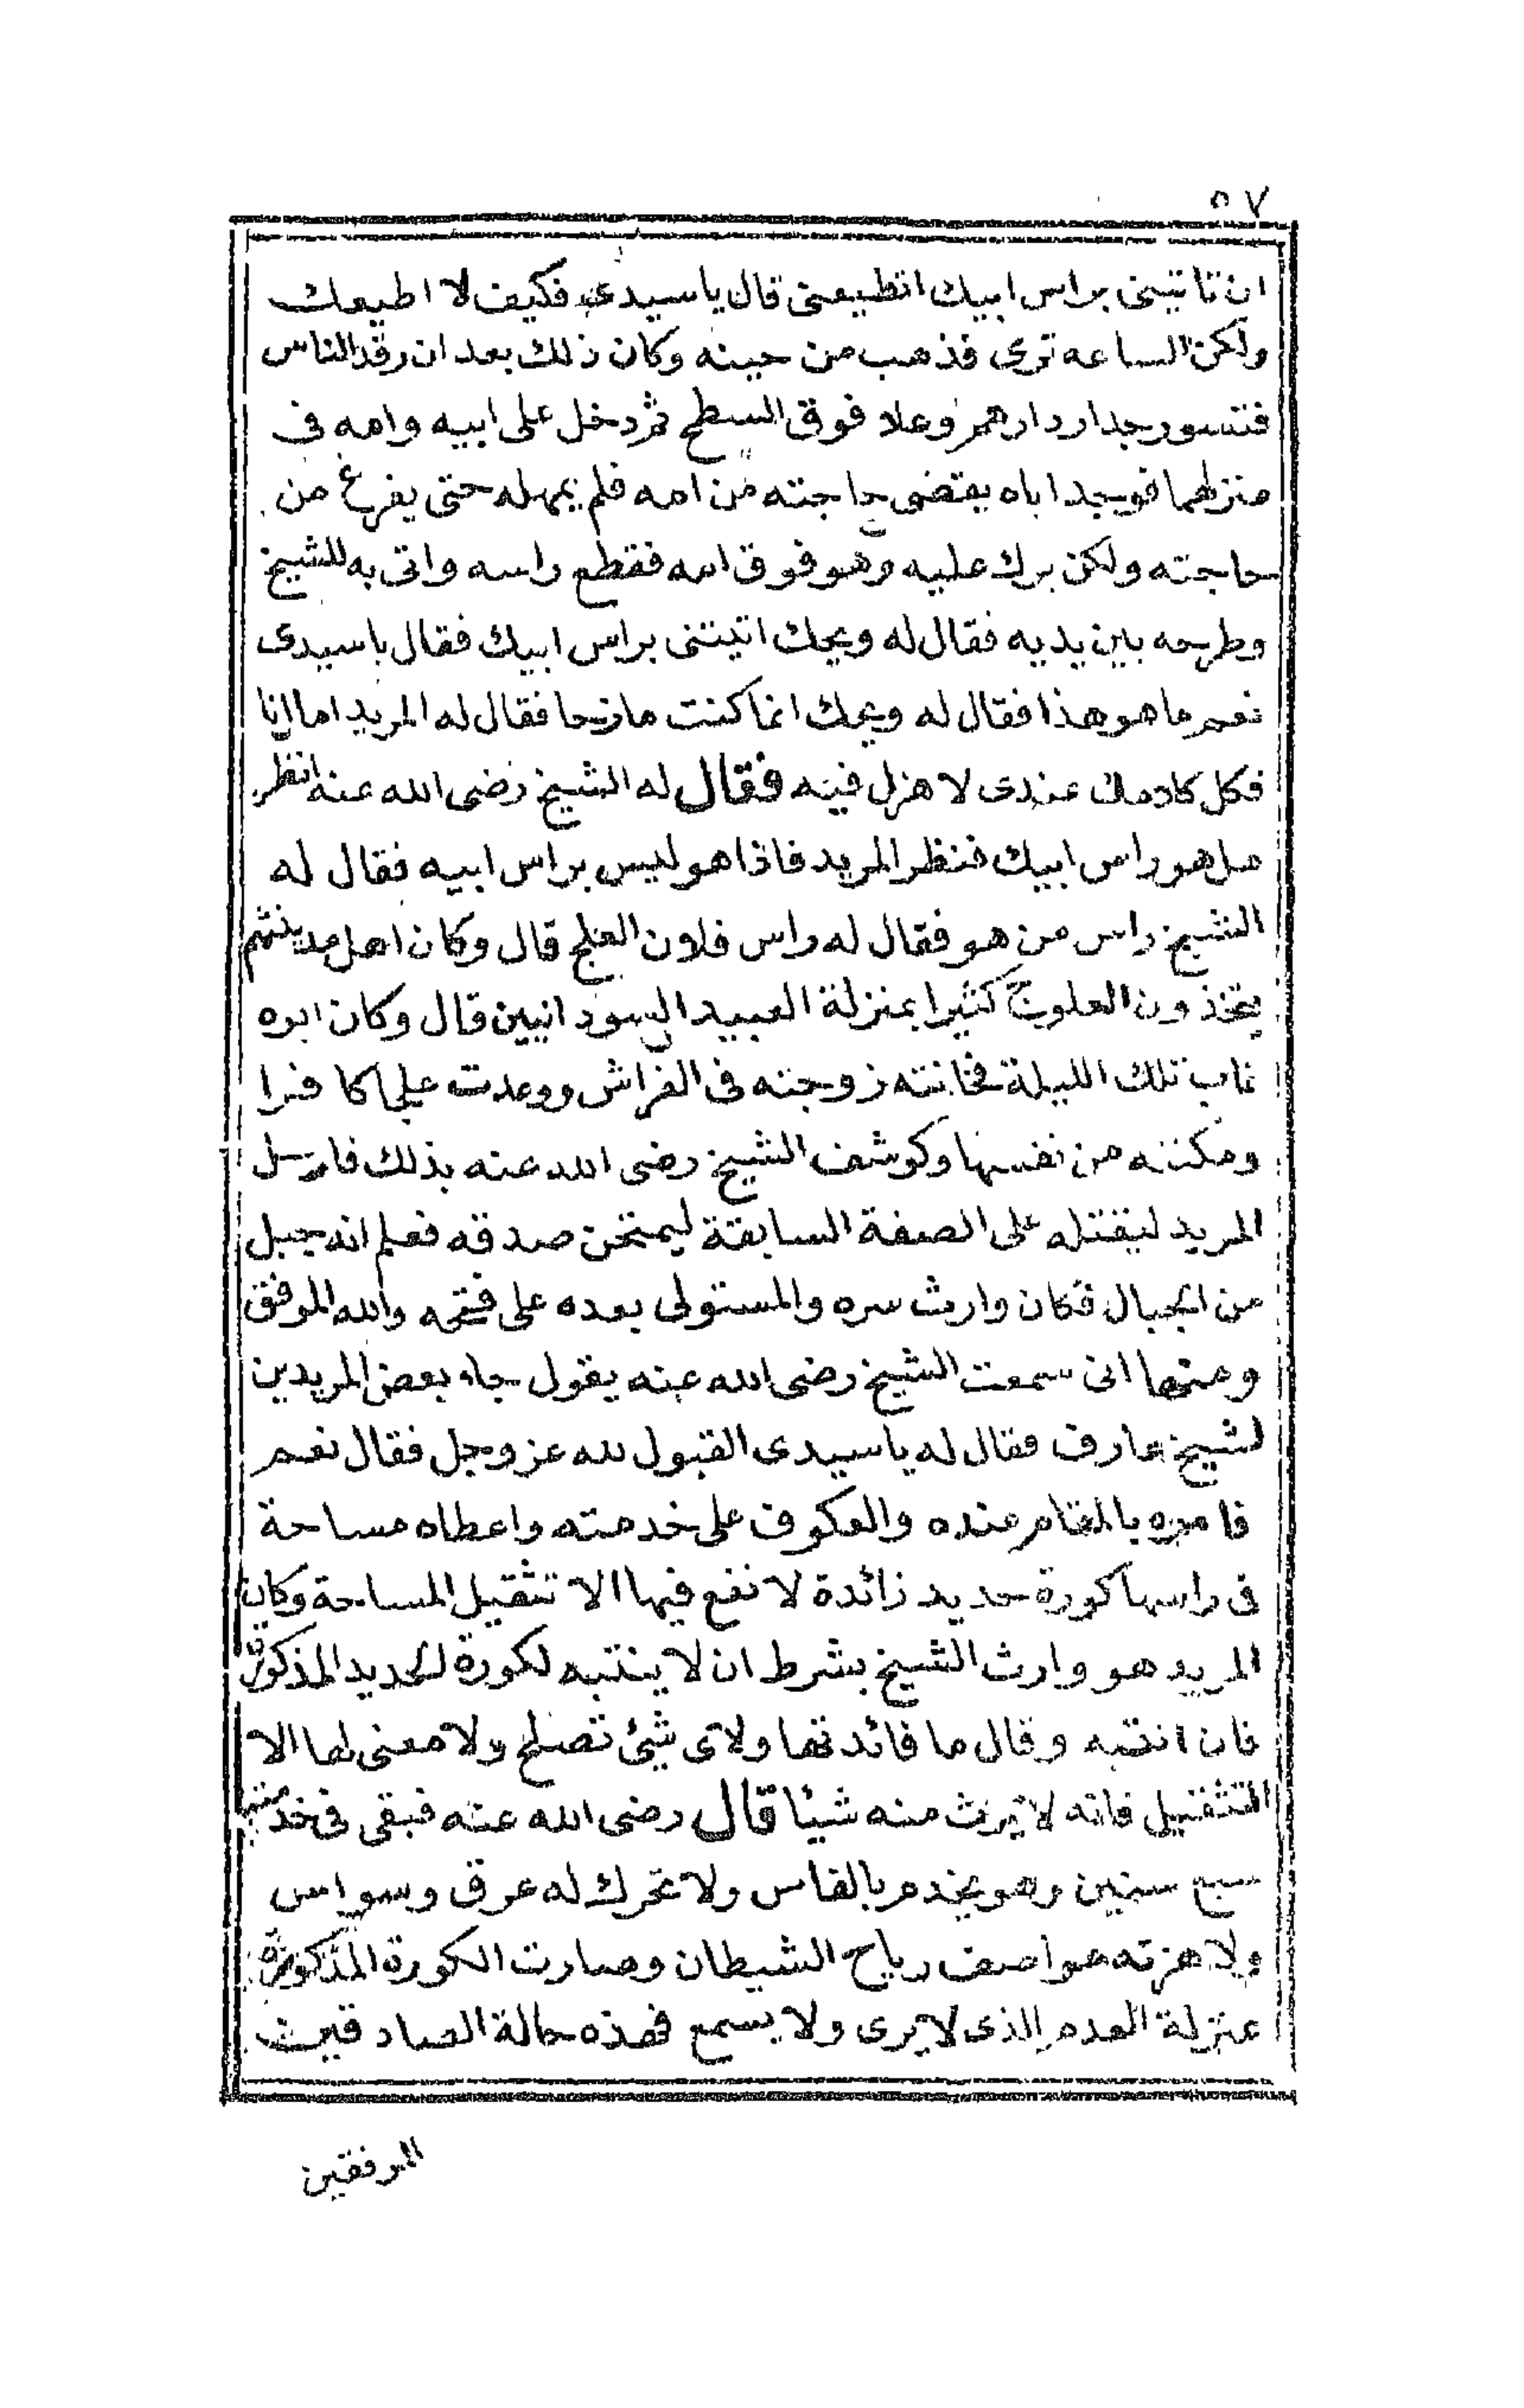 ٥٧
ان تاتيني براس ابيك اتطيعني قال يا سيدي فكيف لا اطيعك
ولكن الساعه ترى فذهب من حينه وكان ذلك بعد ان رقد الناس
فتسور جدار دارهم وعلا فوق السطح ثم دخل على ابيه وامه في
منزلهما فوجد اباه يقضى حاجته من امه فلم يمهله حتى يفرغ من
حاجته ولكن برك عليه وهو فوق امه فقطع راسه واتى به للشيخ
وطرحه بين يديه فقال له ويحك اتيتنى براس ابيك فقال يا سيدى
نعم ما هو هذا فقال له ويحك انما كنت مازحا فقال له المريد اما انا
فكل كلامك عندى لا هزل فيه فقال له الشيخ رضى الله عنه انظر
هل هو راس ابيك فنظر المريد فاذا هو ليس براس ابيه فقال له
الشيخ راس من هو فقال له راس فلان العلج قال وكان اهل مدينتهم
يتخذون العلوج كثيرا بمنزلة العبيد السودانيين قال وكان ابوه
غاب تلك الليلة فخانته زوجته فى الفراش ووعدت علجا كافرا
ومكنته من نفسها وكوشف الشيخ رضى الله عنه بذلك فارسل
المريد ليقتله على الصفة السابقة ليمتحن صدقه فعلم انه جبل
من الجبال فكان وارث سره والمستولى بعده على فتحه والله الموفق
ومنها انى سمعت الشيخ رضى الله عنه يقول جاء بعض المريدين
لشيخ عارف فقال له يا سيدى القبول لله عز وجل فقال نعم
فامره بالمقام عنده والعكوف على خدمته واعطاه مساحة
فى راسها كورة حديد زائدة لا نفع فيها الا تثقيل المساحة وكان
المريد هو وارث الشيخ بشرط ان لا ينتبه لكورة الحديد المذكورة
فان انتبه وقال ما فائدتها ولاى شيئ تصلح ولا معنى لها الا
التثقيل فانه لا يرث منه شيئا قال رضى الله عنه فبقى فى خدمتها
سبع سنين وهو يخدم بالفاس ولا تحرك له عرق وسواس
ولا هزته عواصف رياح الشيطان وصارت الكورة المذكورة
بمنزلة العدم الذى لا يرى ولا يسمع فهذه حالة الصادقين
الموفقين